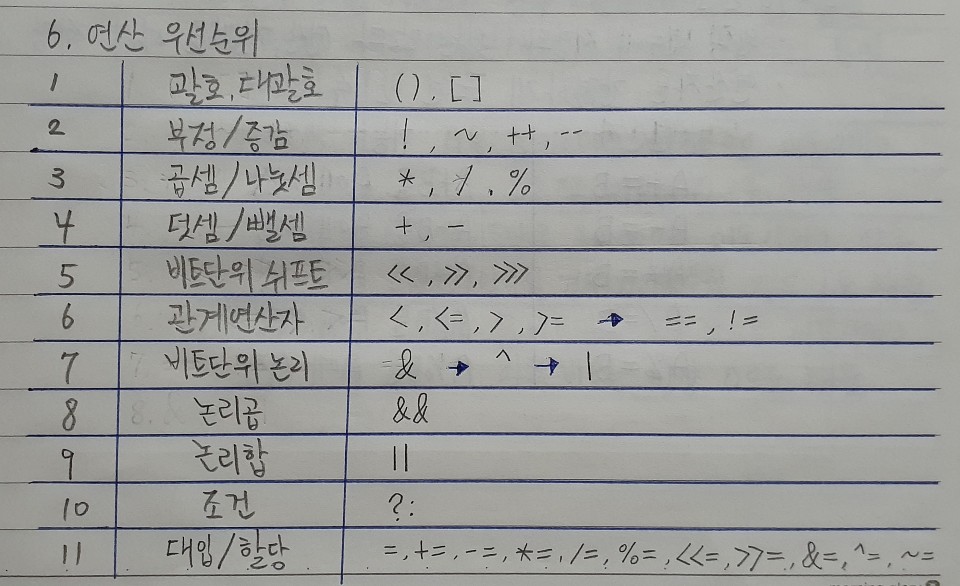 6. 연산 우선순위
1 괄호, 대괄호 (), []
2 부정/증감 !, ~, ++, --
3 곱셈/나눗셈 *, /, %
4 덧셈/뺄셈 +, -
5 비트단위 쉬프트 <<, >>, >>>
6 관계연산자 <, <=, >, >= → ==, !=
7 비트단위 논리 & → ^ → |
8 논리곱 &&
9 논리합 ||
10 조건 ?:
11 대입/할당 =, +=, -=, *=, /=, %=, <<=, >>=, &=, ^=, ~=